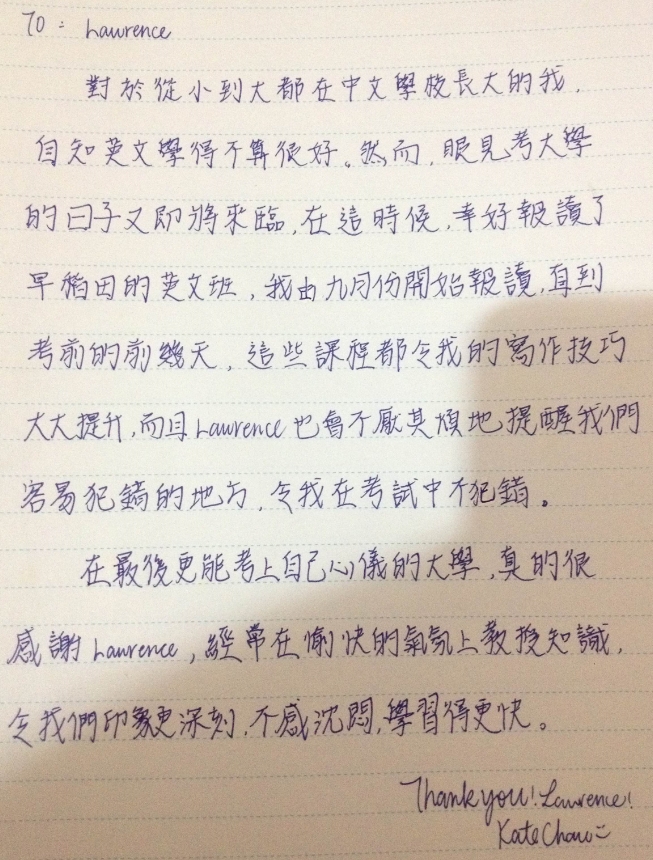 To: Lawrence
對於從小到大都在中文學校長大的我,
自知英文學得不算很好。然而,眼見考大學
的日子又即將來臨,在這時候,幸好報讀了
早稻田的英文班,我由九月份開始報讀,直到
考前的前幾天,這些課程都令我的寫作技巧
大大提升,而且Lawrence也會不厭其煩地提醒我們
容易犯錯的地方,令我在考試中不犯錯。
在最後更能考上自己心儀的大學,真的很
感謝Lawrence,經常在愉快的氣氛上教授知識,
令我們印象更深刻,不感沈悶,學習得更快。
Thank you! Lawrence!
Kate Chau